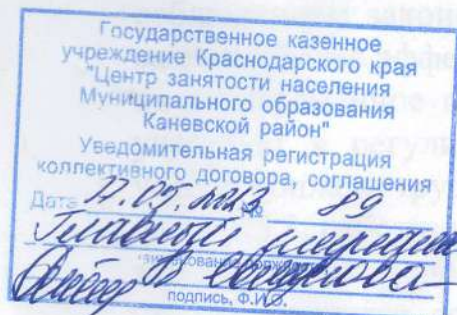 Государственное казенное
учреждение Краснодарского края
"Центр занятости населения
Муниципального образования
Каневской район"
Уведомительная регистрация
коллективного договора, соглашения
Дата № 89
Главный
подпись, Ф.И.О.